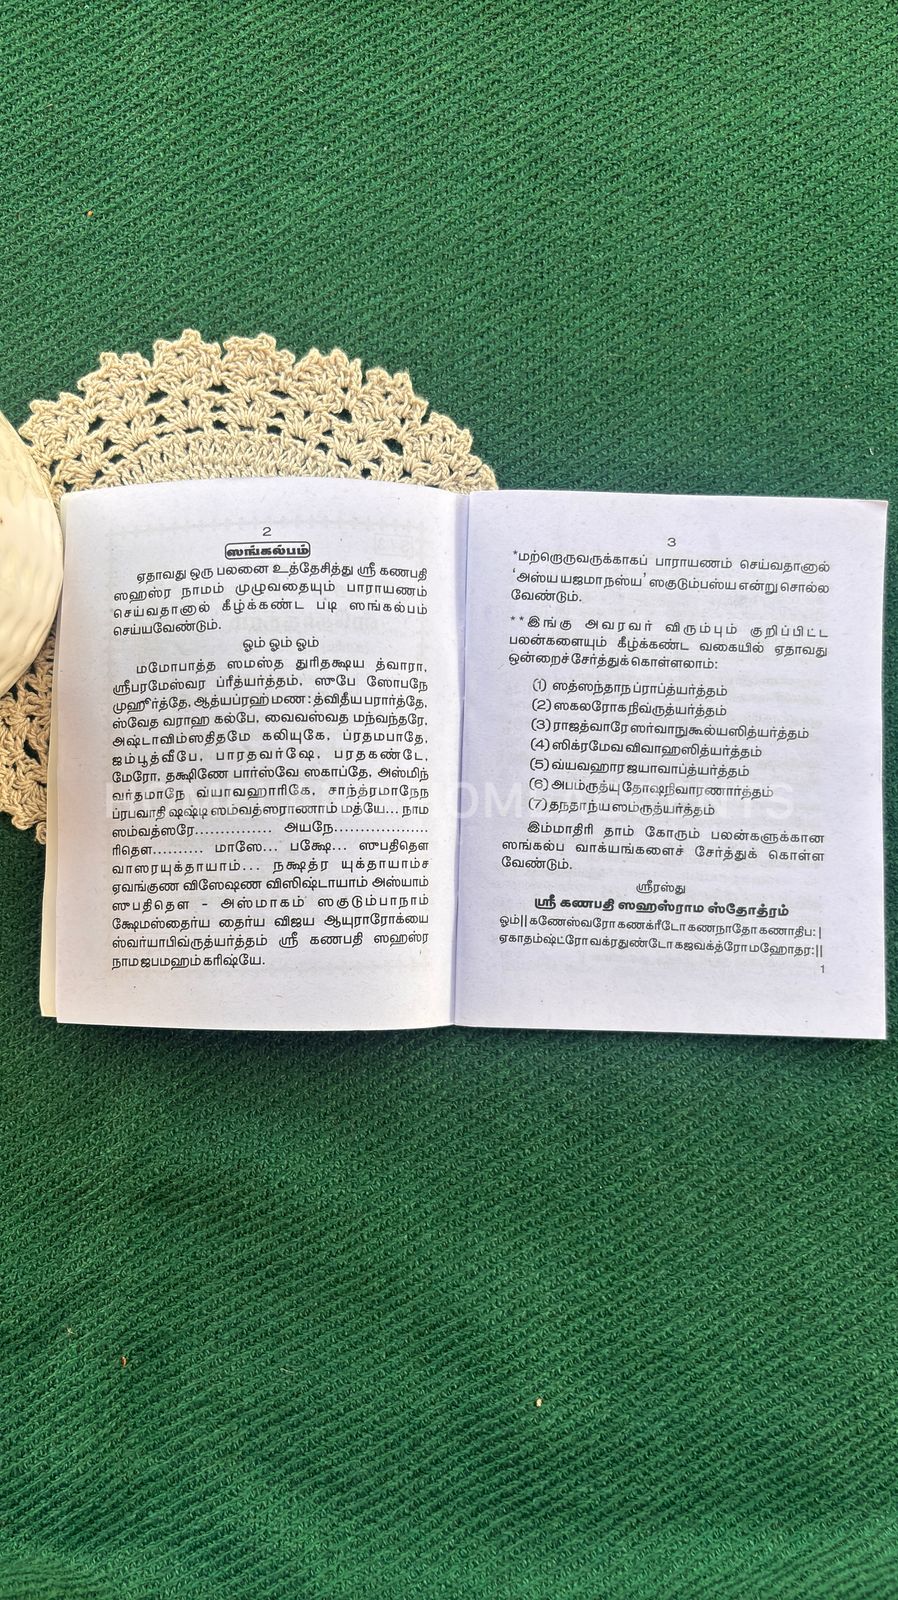 2
ஸங்கல்பம்
ஏதாவது ஒரு பலனை உத்தேசித்து ஸ்ரீ கணபதி
ஸஹஸ்ர நாமம் முழுவதையும் பாராயணம்
செய்வதானால் கீழ்க்கண்ட படி ஸங்கல்பம்
செய்யவேண்டும்.
ஓம் ஓம் ஓம்
மமோபாத்த ஸமஸ்த துரிதக்ஷய த்வாரா,
ஸ்ரீபரமேஸ்வர ப்ரீத்யர்த்தம், ஸுபே ஸோபநே
முஹூர்த்தே, ஆத்யப்ரஹ்மண: த்விதீய பரார்த்தே,
ஸ்வேத வராஹ கல்பே, வைவஸ்வத மந்வந்தரே,
அஷ்டாவிம்ஸதிதமே கலியுகே, ப்ரதமபாதே,
ஜம்பூத்வீபே, பாரதவர்ஷே, பரதகண்டே,
மேரோ, தக்ஷிணே பார்ஸ்வே ஸகாப்தே, அஸ்மிந்
வர்தமாநே வ்யாவஹாரிகே, சாந்த்ரமாநேந
ப்ரபவாதி ஷஷ்டி ஸம்வத்ஸராணாம் மத்யே... நாம
ஸம்வத்ஸரே............... அயநே..................
ரிதௌ.......... மாஸே... பக்ஷே... ஸுபதிதௌ
வாஸரயுக்தாயாம்... நக்ஷத்ர யுக்தாயாம்ச
ஏவங்குண விஸேஷண விஸிஷ்டாயாம் அஸ்யாம்
ஸுபதிதௌ - அஸ்மாகம் ஸகுடும்பாநாம்
க்ஷேமஸ்தைர்ய தைர்ய விஜய ஆயுராரோக்யை
ஸ்வர்யாபிவ்ருத்யர்த்தம் ஸ்ரீ கணபதி ஸஹஸ்ர
நாம ஜபமஹம் கரிஷ்யே.
3
*மற்றெருவருக்காகப் பாராயணம் செய்வதானால்
‘அஸ்ய யஜமாநஸ்ய’ ஸகுடும்பஸ்ய என்று சொல்ல
வேண்டும்.
**இங்கு அவரவர் விரும்பும் குறிப்பிட்ட
பலன்களையும் கீழ்க்கண்ட வகையில் ஏதாவது
ஒன்றைச்சேர்த்துக்கொள்ளலாம்:
(1) ஸத்ஸந்தாந ப்ராப்த்யர்த்தம்
(2) ஸகலரோக நிவ்ருத்யர்த்தம்
(3) ராஜத்வாரே ஸர்வாநுகூல்யஸித்யர்த்தம்
(4) ஸிக்ரமேவ விவாஹஸித்யர்த்தம்
(5) வ்யவஹார ஜயாவாப்த்யர்த்தம்
(6) அபம்ருத்யு தோஷநிவாரணார்த்தம்
(7) தநதாந்யஸம்ருத்யர்த்தம்
இம்மாதிரி தாம் கோரும் பலன்களுக்கான
ஸங்கல்ப வாக்யங்களைச் சேர்த்துக் கொள்ள
வேண்டும்.
ஸ்ரீரஸ்து
ஸ்ரீ கணபதி ஸஹஸ்ராம ஸ்தோத்ரம்
ஓம்|| கணேஸ்வரோ கணக்ரீடோ கணநாதோ கணாதிப:|
ஏகாதம்ஷ்ட்ரோ வக்ரதுண்டோ கஜவக்த்ரோ மஹோதர:||
1